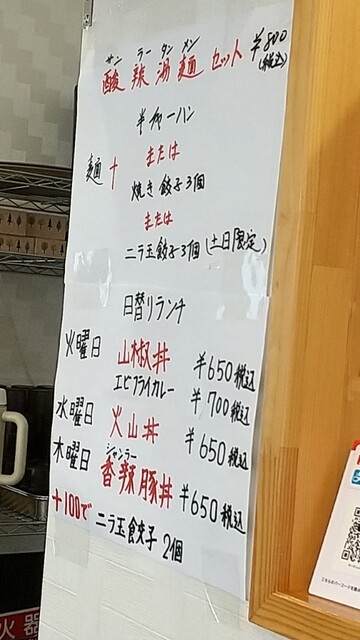 サン ラー タン メン
酸辣湯麺 セット ¥800
(税込)
半チャーハン
麺 + または
焼き餃子3個
または
ニラ玉餃子3個 (土日限定)
日替りランチ
火曜日 山椒丼 ¥650税込
エビフライカレー ¥700税込
水曜日 火山丼 ¥650税込
シャンラー
木曜日 香辣豚丼 ¥650税込
+100で ニラ玉餃子 2個
火器